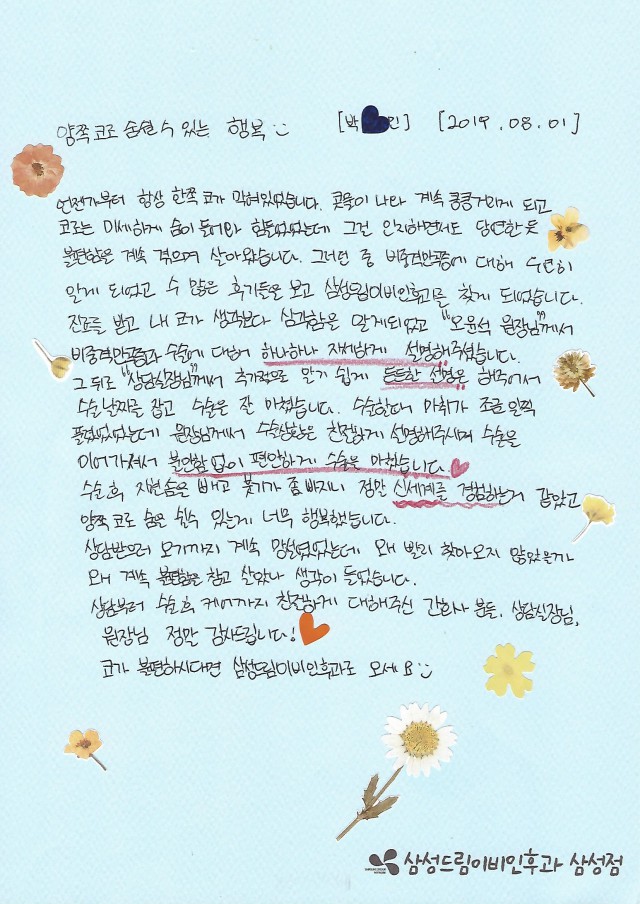 양쪽 코로 숨쉴 수 있는 행복 [박 인] [2019. 08. 01]
언젠가부터 항상 한쪽 코가 막혀있었습니다. 콧물이 나와 계속 킁킁거리게 되고
코로는 미세하게 숨이 들어와 힘들었었는데 그걸 인지하면서도 당연한 듯
불편함을 계속 겪으며 살아왔습니다. 그러던 중 비중격만곡증에 대해 우연히
알게 되었고 수 많은 후기들을 보고 삼성드림이비인후과를 찾게 되었습니다.
진료를 받고 내 코가 생각보다 심각함을 알게되었고 "오윤석 원장님"께서
비중격만곡증과 수술에 대하여 하나하나 자세하게 설명해주셨습니다.
그 뒤로 "상담실장님"께서 추가적으로 알기 쉽게 든든한 설명을 해주어서
수술날짜를 잡고 수술은 잘 마쳤습니다. 수술할때 마취가 조금 일찍
풀렸었는데 원장님께서 수술상황을 친절하게 설명해주시며 수술을
이어가셔서 불안함 없이 편안하게 수술을 마쳤습니다.
수술 후 지혈솜을 빼고 붓기가 좀 빠지니 정말 신세계를 경험하는거 같았고
양쪽 코로 숨을 쉴수 있는게 너무 행복했습니다.
상담받으러 오기까지 계속 망설였었는데 왜 빨리 찾아오지 않았을까
왜 계속 불편함을 참고 살았나 생각이 들었습니다.
상담부터 수술 후 케어까지 친절하게 대해주신 간호사 분들, 상담실장님,
원장님 정말 감사드립니다!
코가 불편하시다면 삼성드림이비인후과로 오세요
삼성드림이비인후과 삼성점